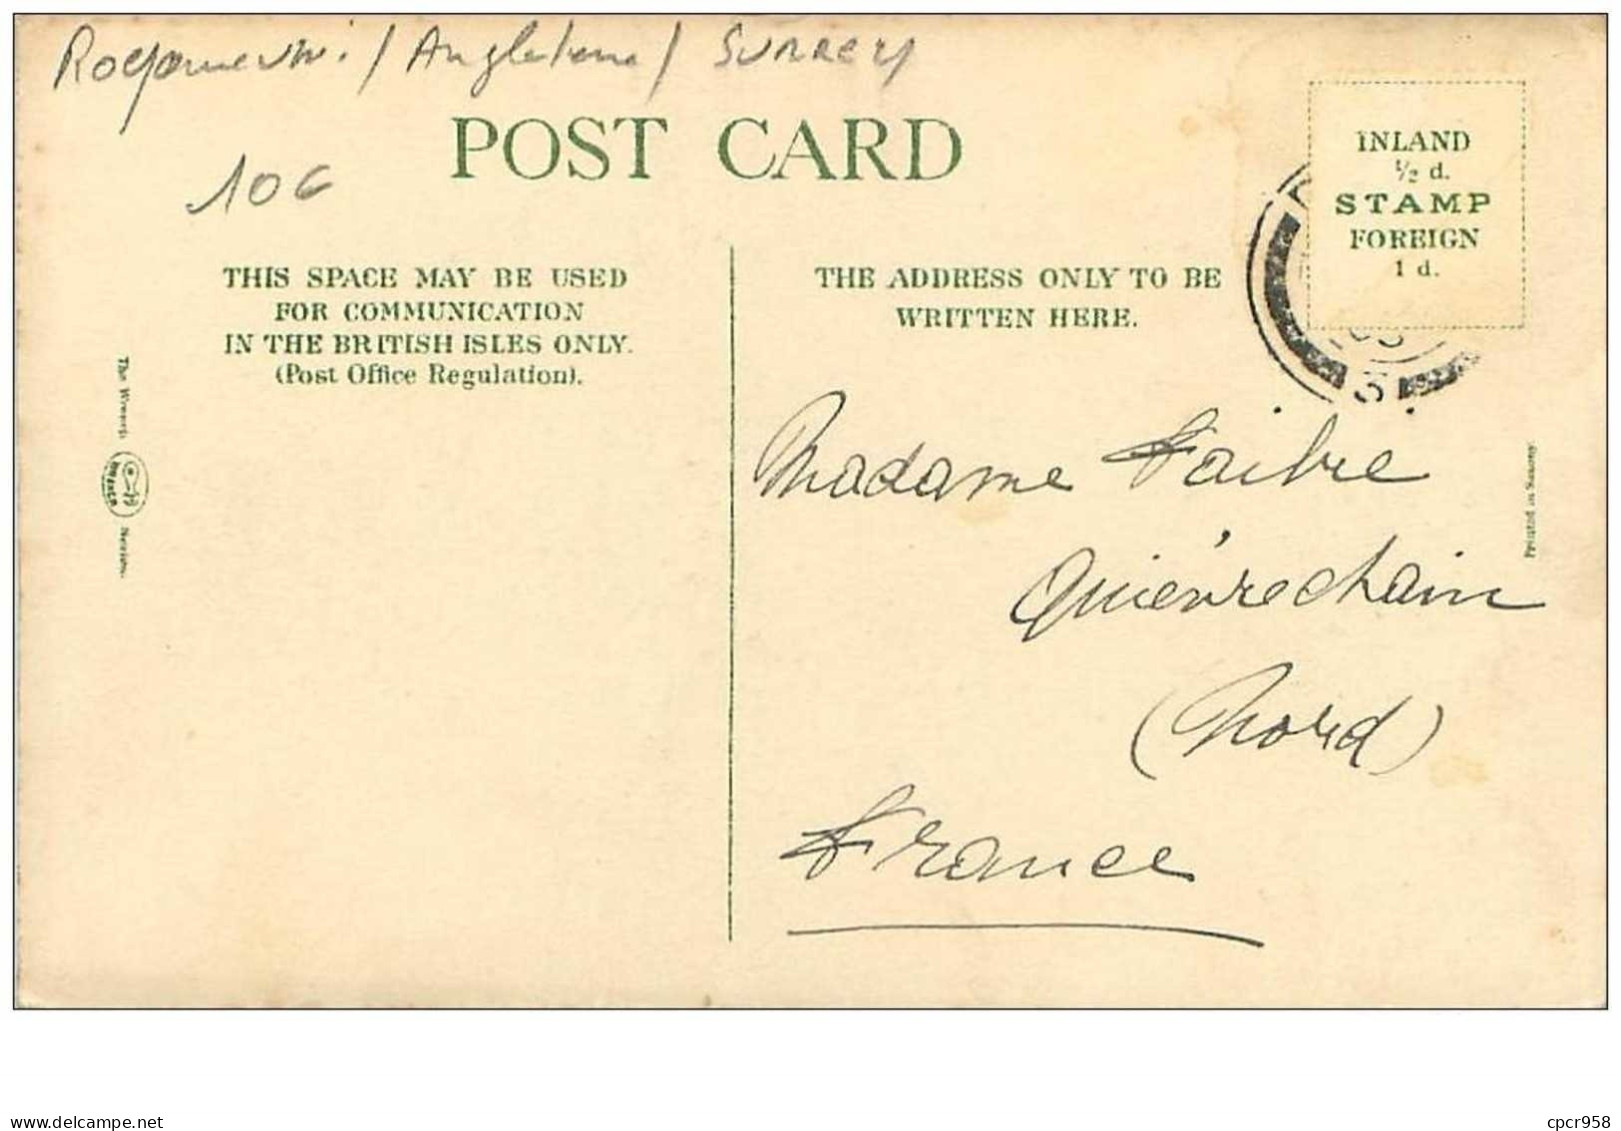 Royaume Uni / Angleterre / SURREY
POST CARD
10€
INLAND
½ d.
STAMP
FOREIGN
1 d.
THIS SPACE MAY BE USED
FOR COMMUNICATION
IN THE BRITISH ISLES ONLY.
(Post Office Regulation).
THE ADDRESS ONLY TO BE
WRITTEN HERE.
3
The Wrench
Series.
Madame Faibre
Quiévrechain
(Nord)
France
Printed in Saxony
www.delcampe.net
cpcr958